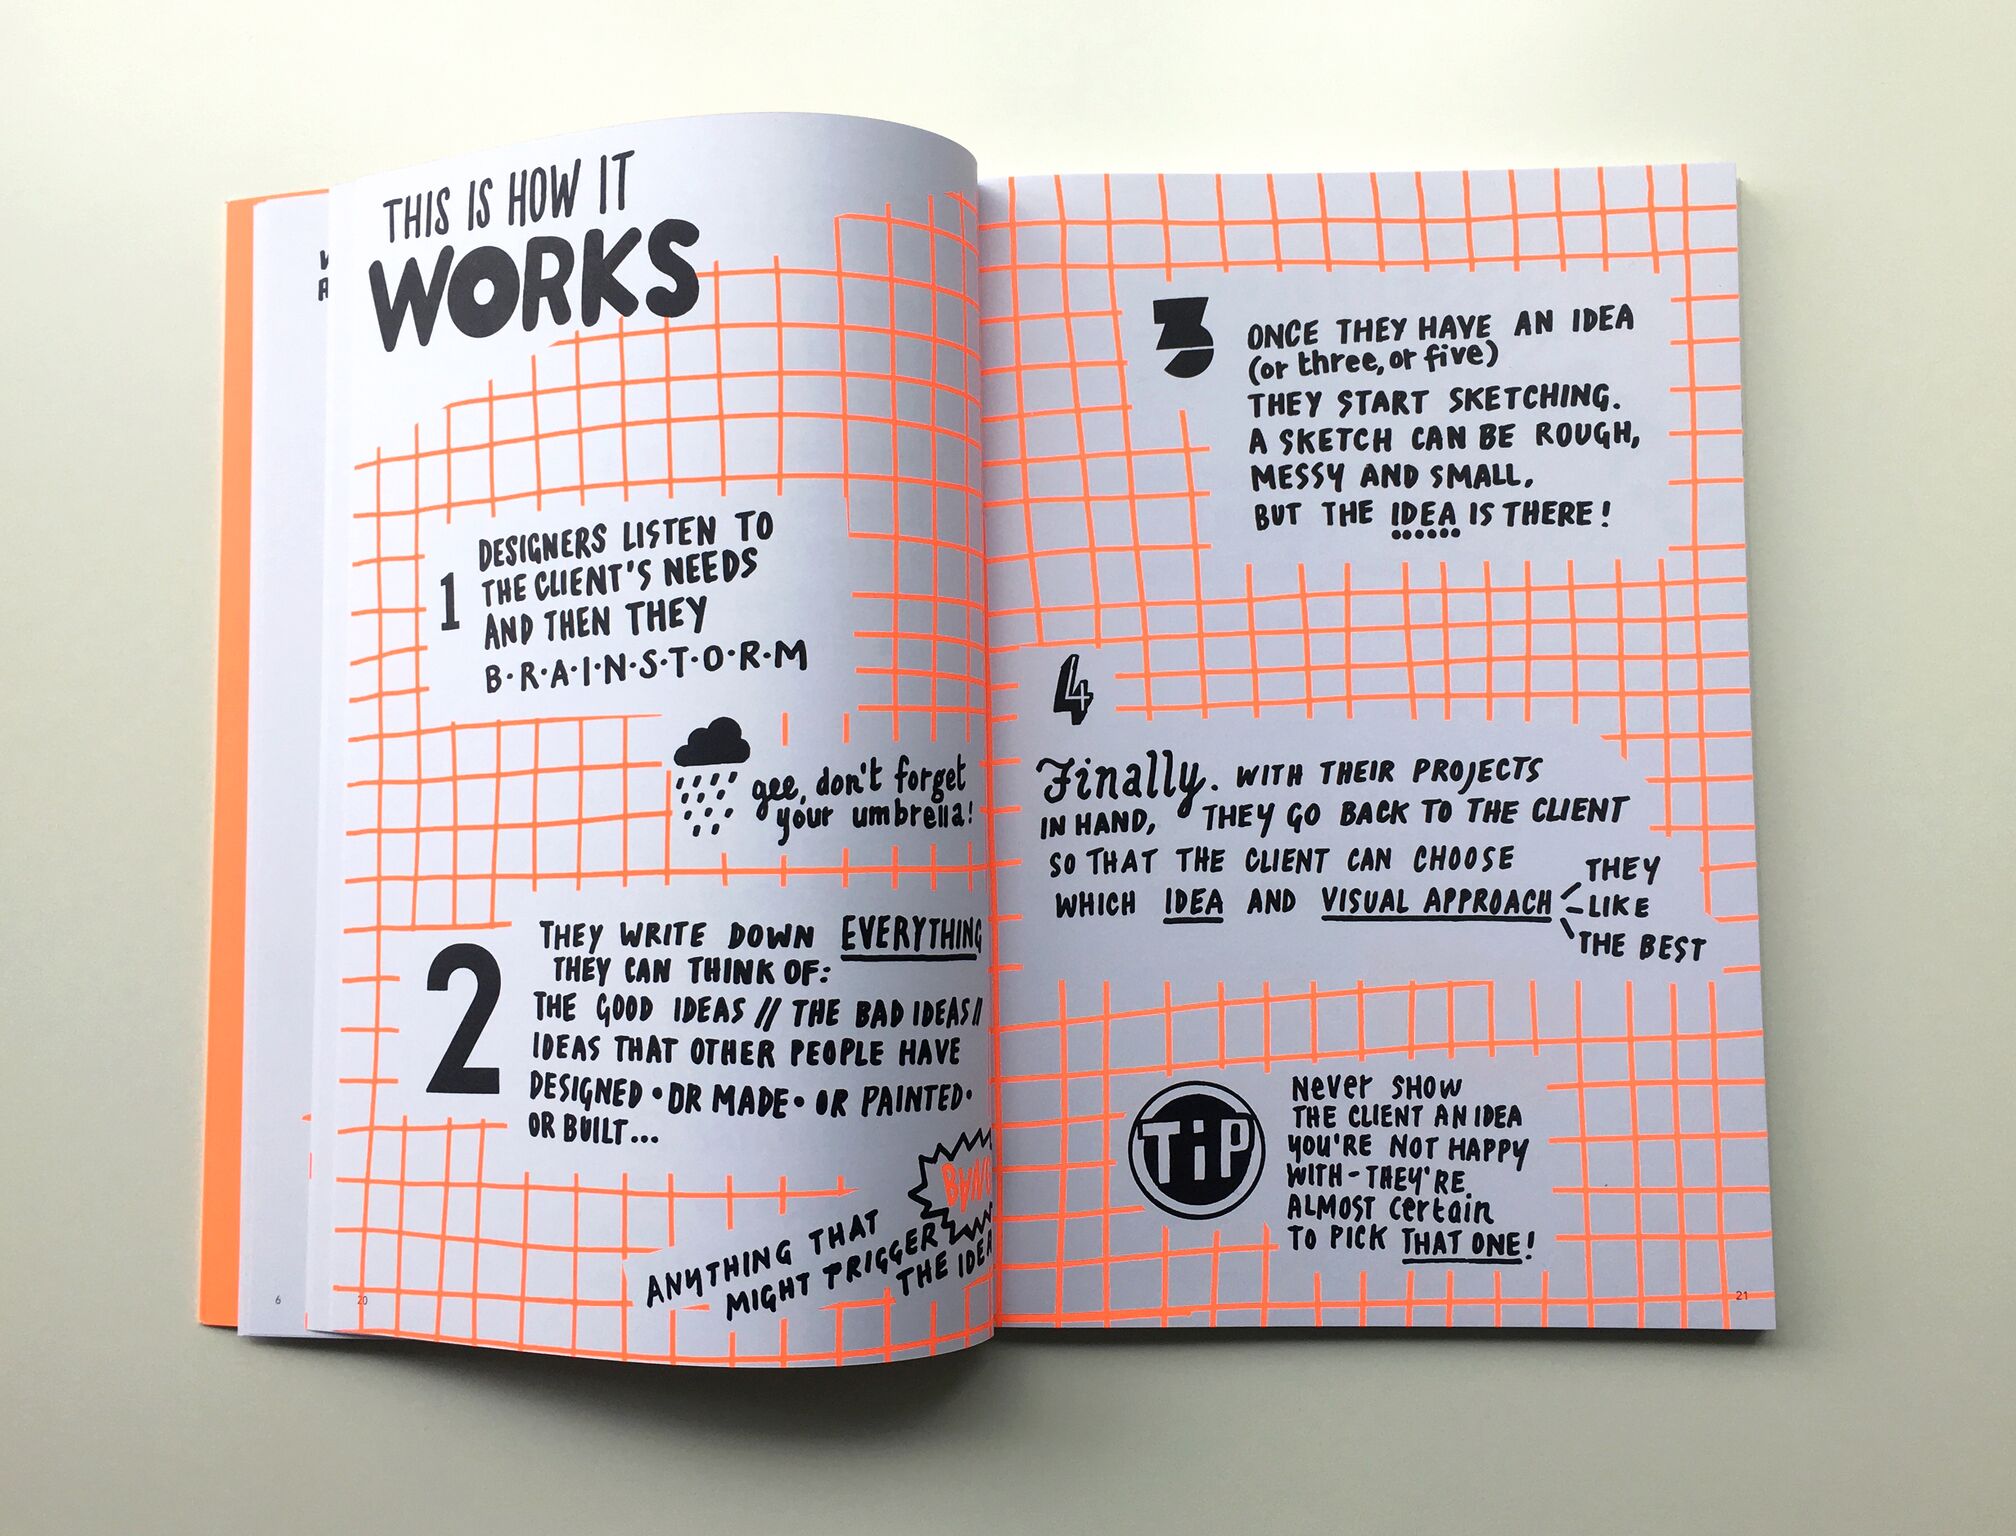 THIS IS HOW IT
WORKS
1
DESIGNERS LISTEN TO
THE CLIENT'S NEEDS
AND THEN THEY
B·R·A·I·N·S·T·O·R·M
gee, don't forget
your umbrella!
2
THEY WRITE DOWN EVERYTHING
THEY CAN THINK OF:
THE GOOD IDEAS // THE BAD IDEAS //
IDEAS THAT OTHER PEOPLE HAVE
DESIGNED • OR MADE • OR PAINTED •
OR BUILT...
ANYTHING THAT
MIGHT TRIGGER
THE IDEA
6
20
3
ONCE THEY HAVE AN IDEA
(or three, or five)
THEY START SKETCHING.
A SKETCH CAN BE ROUGH,
MESSY AND SMALL.
BUT THE IDEA IS THERE!
4
Finally. WITH THEIR PROJECTS
IN HAND, THEY GO BACK TO THE CLIENT
SO THAT THE CLIENT CAN CHOOSE
WHICH IDEA AND VISUAL APPROACH
THEY
LIKE
THE BEST
TiP
Never SHOW
THE CLIENT AN IDEA
YOU'RE NOT HAPPY
WITH - THEY'RE
ALMOST certain
TO PICK THAT ONE!
21